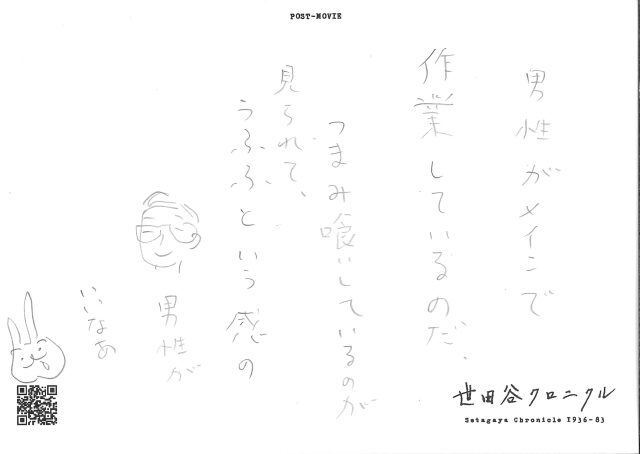 POST-MOVIE
男性がメインで
作業しているのだ、
つまみ喰いしているのが
見られて、
うふふという感の
男性が
いいなあ
世田谷クロニクル
Setagaya Chronicle 1936-83